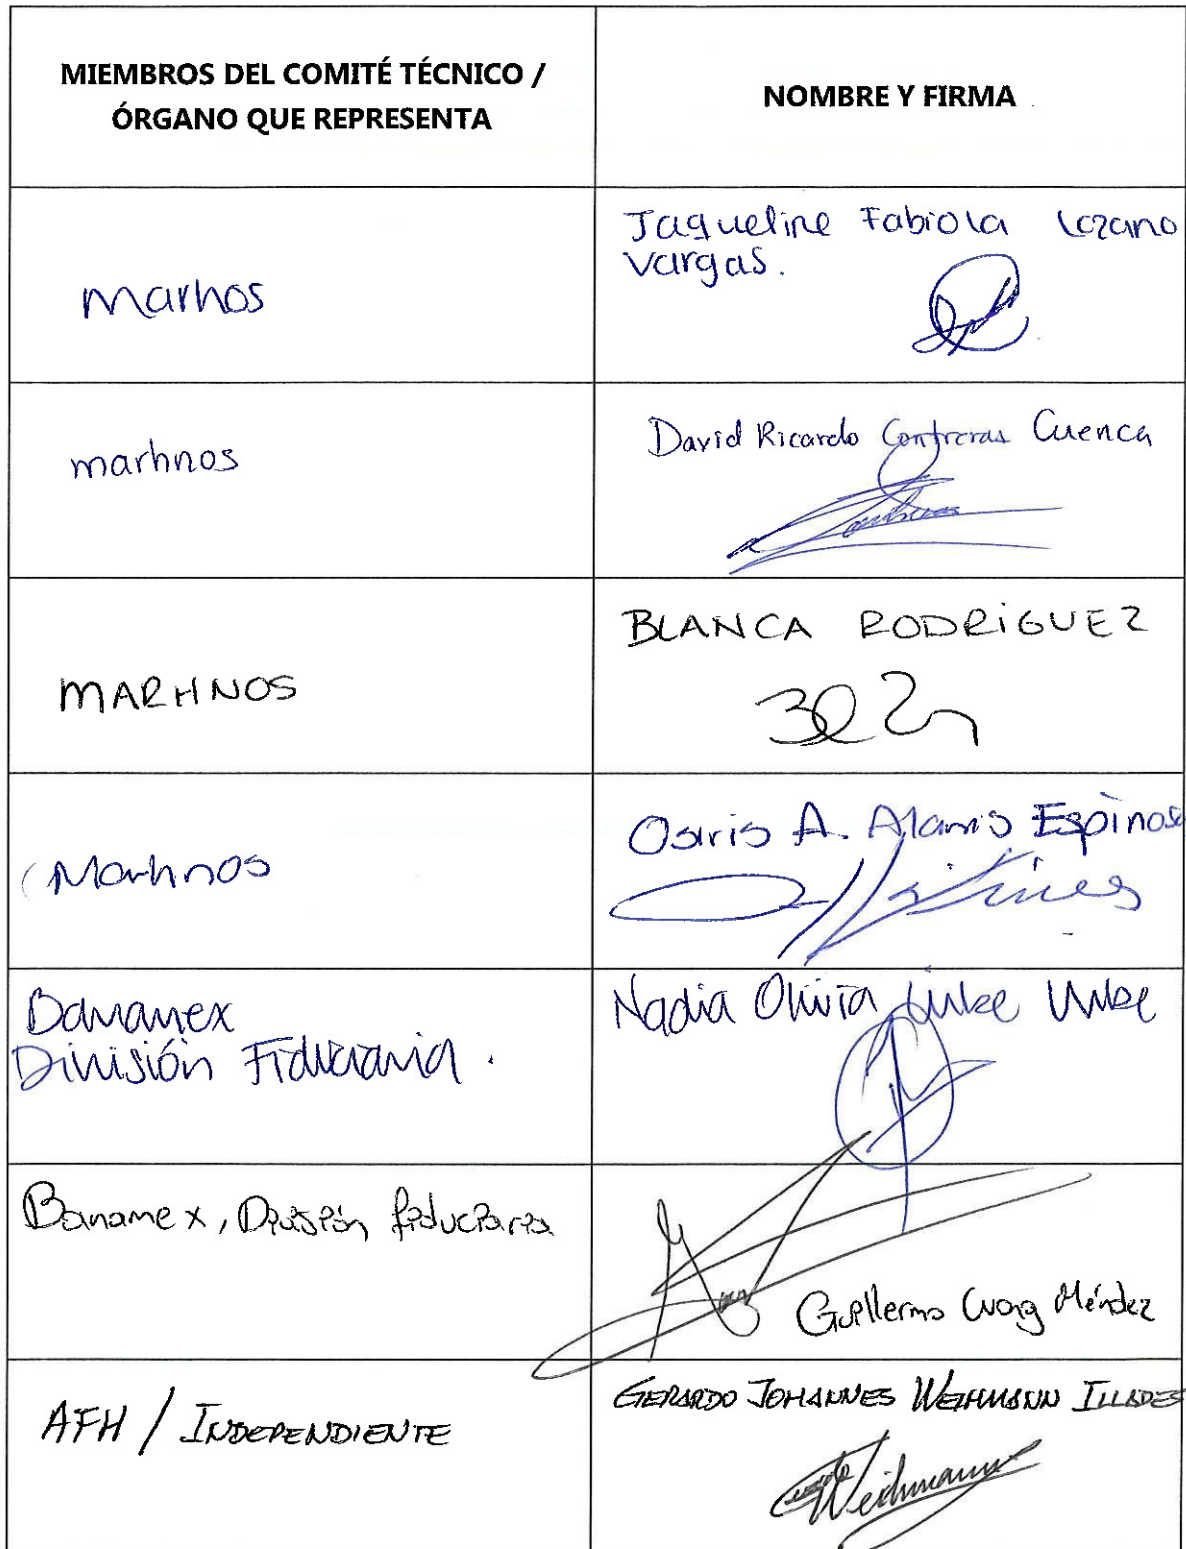 MIEMBROS DEL COMITÉ TÉCNICO /
ÓRGANO QUE REPRESENTA
NOMBRE Y FIRMA
marhos
Jaqueline Fabiola Lozano
Vargas.
marhnos
David Ricardo Contreras Cuenca
MARHNOS
BLANCA RODRIGUEZ
Marhnos
Osiris A. Alamis Espinosa
Banamex
División Fiduciaria.
Nadia Olivia Uribe Uribe
Banamex, División fiduciaria
Guillermo Wong Méndez
AFH / INDEPENDIENTE
GERARDO JOHANNES WEIHMANN ILLADES
Weihmann